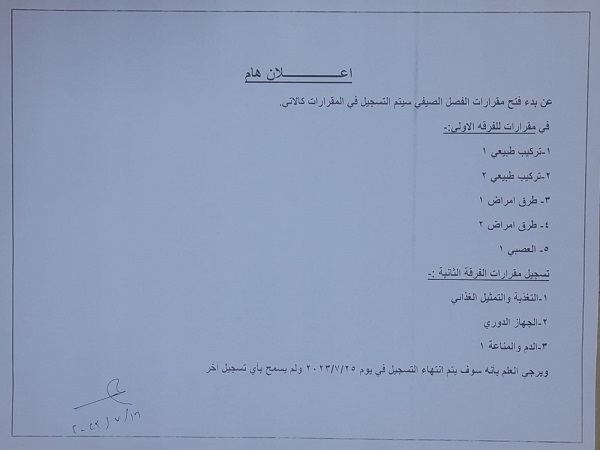 اعـــــــــلان هام
عن بدء فتح مقرارات الفصل الصيفي سيتم التسجيل في المقرارات كالاتي.
في مقرارات للفرقه الاولى:-
١-تركيب طبيعي ١
٢-تركيب طبيعي ٢
٣- طرق امراض ١
٤- طرق امراض ٢
٥- العصبي ١
تسجيل مقرارات الفرقة الثانية :-
١-التغذية والتمثيل الغذائي
٢-الجهاز الدوري
٣-الدم والمناعة ١
ويرجى العلم بأنه سوف يتم انتهاء التسجيل في يوم ٢٠٢٣/٧/٢٥ ولم يسمح بأي تسجيل اخر
٢٠٢٣/٧/١٦